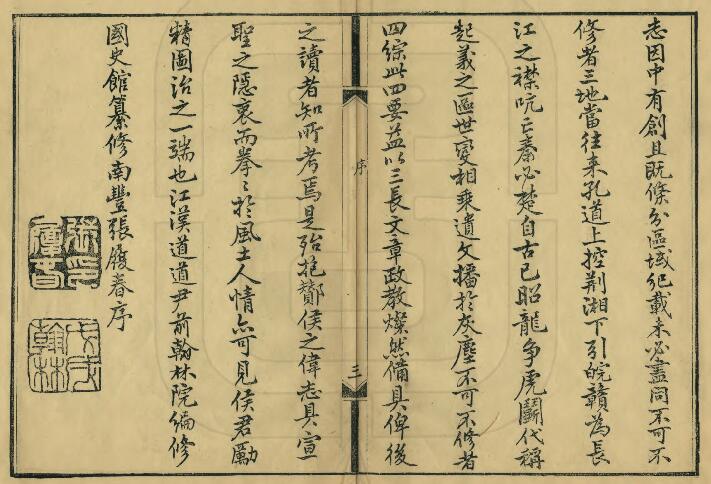 志因中有創且既條分區域紀載未必盡同不可不
修者三地當往来孔道上控荆湘下引皖贛為長
江之襟吭亡秦必楚自古已昭龍争虎鬭代稱
起義之區世變相乘遺文播於灰塵不可不修者
四綜此四要益以三長文章政教燦然備具俾後
序
三
之讀者知所考焉是殆抱酇侯之偉志具宣
聖之隱衷而拳〻於風土人情亦可見侯君勵
精圖治之一端也江漢道道尹前翰林院編修
國史館纂修南豐張履春序
張印
履春
戊戌
翰林